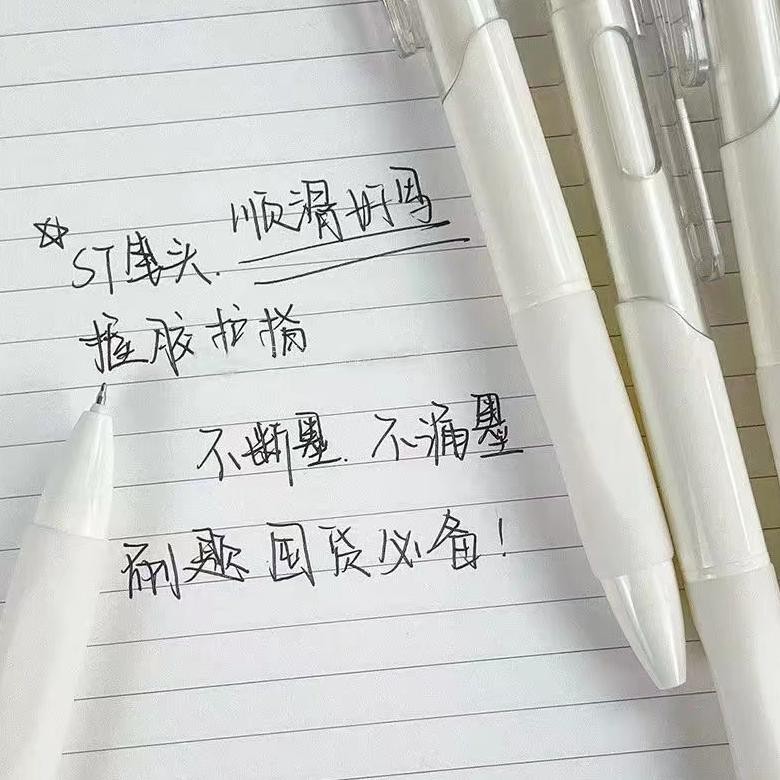 ☆ST笔头. 顺滑好写
握胶护指
不断墨. 不漏墨
刷题囤货必备!